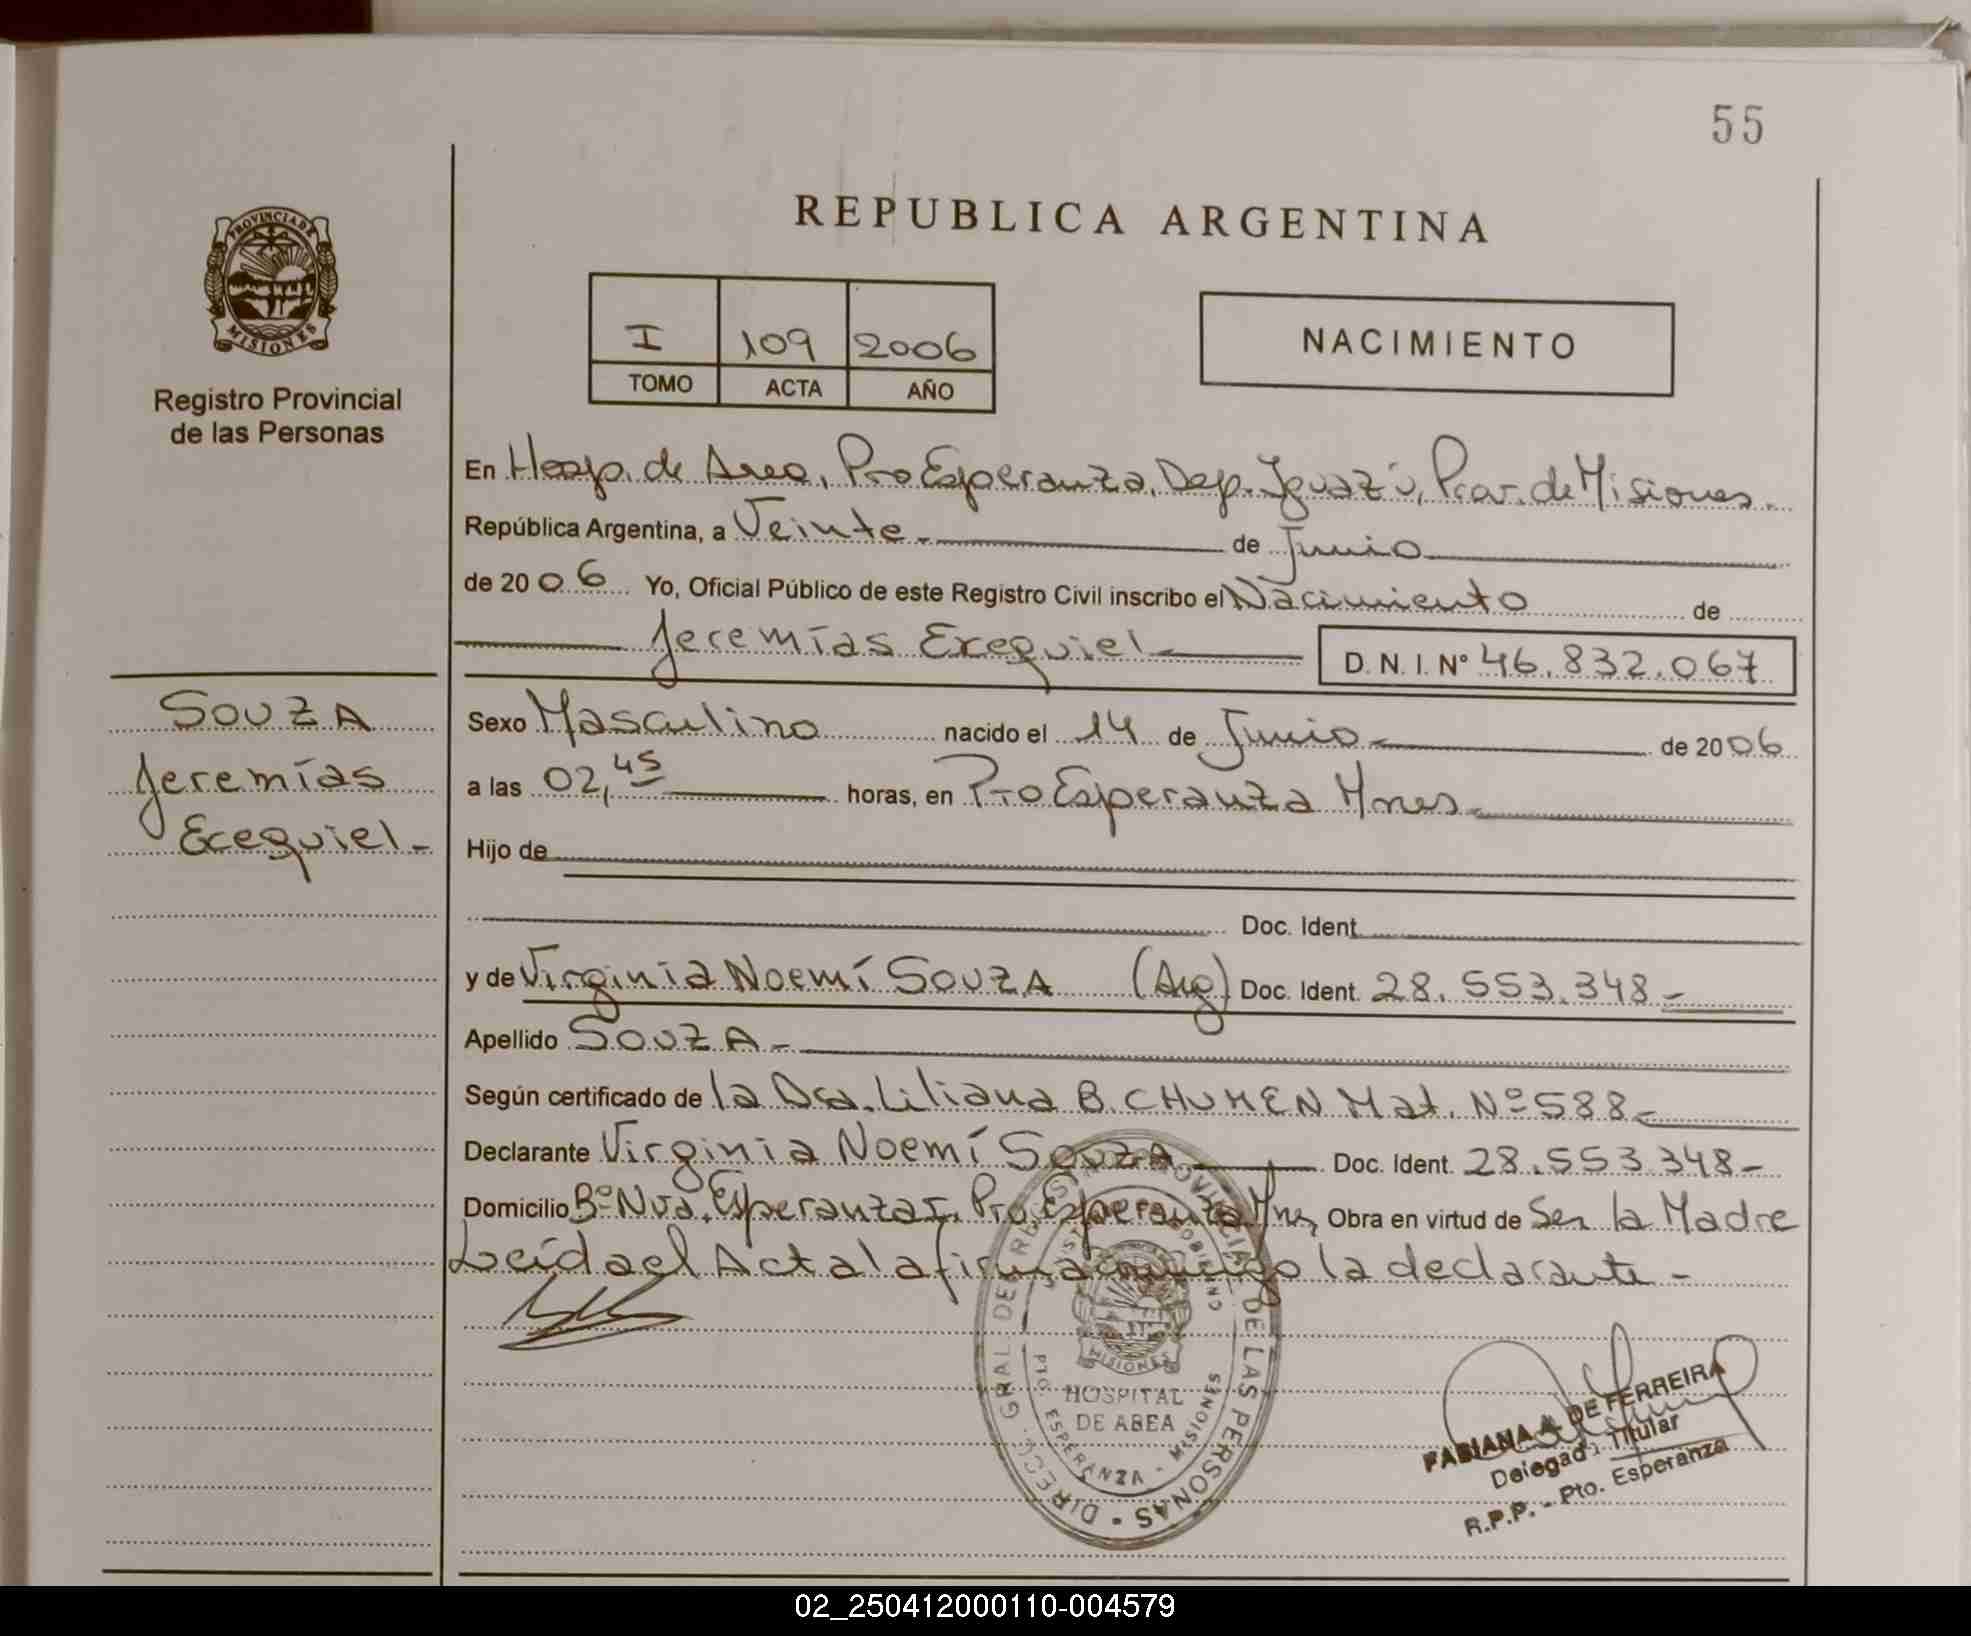 55
REPUBLICA ARGENTINA
PROVINCIA DE
MISIONES
Registro Provincial
de las Personas
I 109 2006
TOMO ACTA AÑO
NACIMIENTO
En Hosp. de Area, Pto Esperanza, Dep. Iguazú, Prov. de Misiones.
República Argentina, a Veinte.- de Junio
de 2006 Yo, Oficial Público de este Registro Civil inscribo el Nacimiento de
Jeremías Exequiel- D. N. I. N° 46.832.067
SOUZA
Jeremías
Ecequiel-
Sexo Masculino nacido el 14 de Junio- de 2006
a las 02,45 horas, en Pto Esperanza Mnes-
Hijo de
Doc. Ident.
y de Virginia Noemí SOUZA (Arg) Doc. Ident. 28.553.348-
Apellido SOUZA-
Según certificado de la Dra. Liliana B. CHUMEN Mat. Nº 588-
Declarante Virginia Noemí SOUZA Doc. Ident. 28.553.348-
Domicilio Bº Nva. Esperanza I, Pto. Esperanza Mnes, Obra en virtud de Ser la Madre
Leída el Acta la firma conmigo la declarante-
DIRECC. GRAL DE REGISTRO PROVINCIAL DE LAS PERSONAS
MISIONES
HOSPITAL
DE AREA
PTO. ESPERANZA - MISIONES
FABIANA A. DE FERREIRA
Delegada Titular
R.P.P. - Pto. Esperanza
02_250412000110-004579